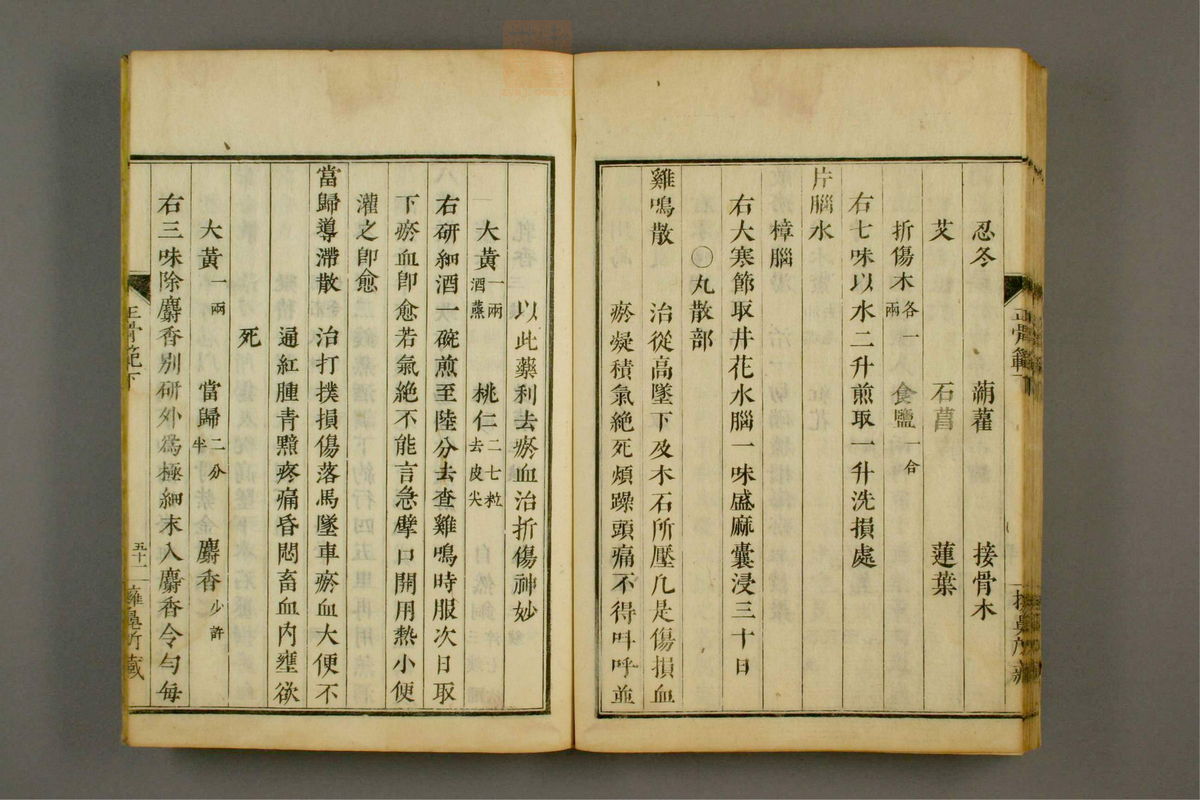 忍冬 蒴藋 接骨木
艾 石菖 蓮葉
折傷木各一兩 食鹽一合
右七味以水二升煎取一升洗損處
片腦水
樟腦
右大寒節取井花水腦一味盛麻囊浸三十日
○丸散部
雞鳴散 治從高墜下及木石所壓凢是傷損血
瘀凝積氣絶死煩躁頭痛不得呌呼並
以此藥利去瘀血治折傷神妙
大黃一兩酒蒸 桃仁二七粒去皮尖
右研細酒一碗煎至陸分去查雞鳴時服次日取
下瘀血即愈若氣絶不能言急擘口開用熱小便
灌之卽愈
當歸導滯散 治打撲損傷落馬墜車瘀血大便不
通紅腫青黯疼痛昏悶畜血內壅欲
死
大黃一兩 當歸二分半 麝香少許
右三味除麝香别研外爲極細末入麝香令勻每
正骨範下
五十一